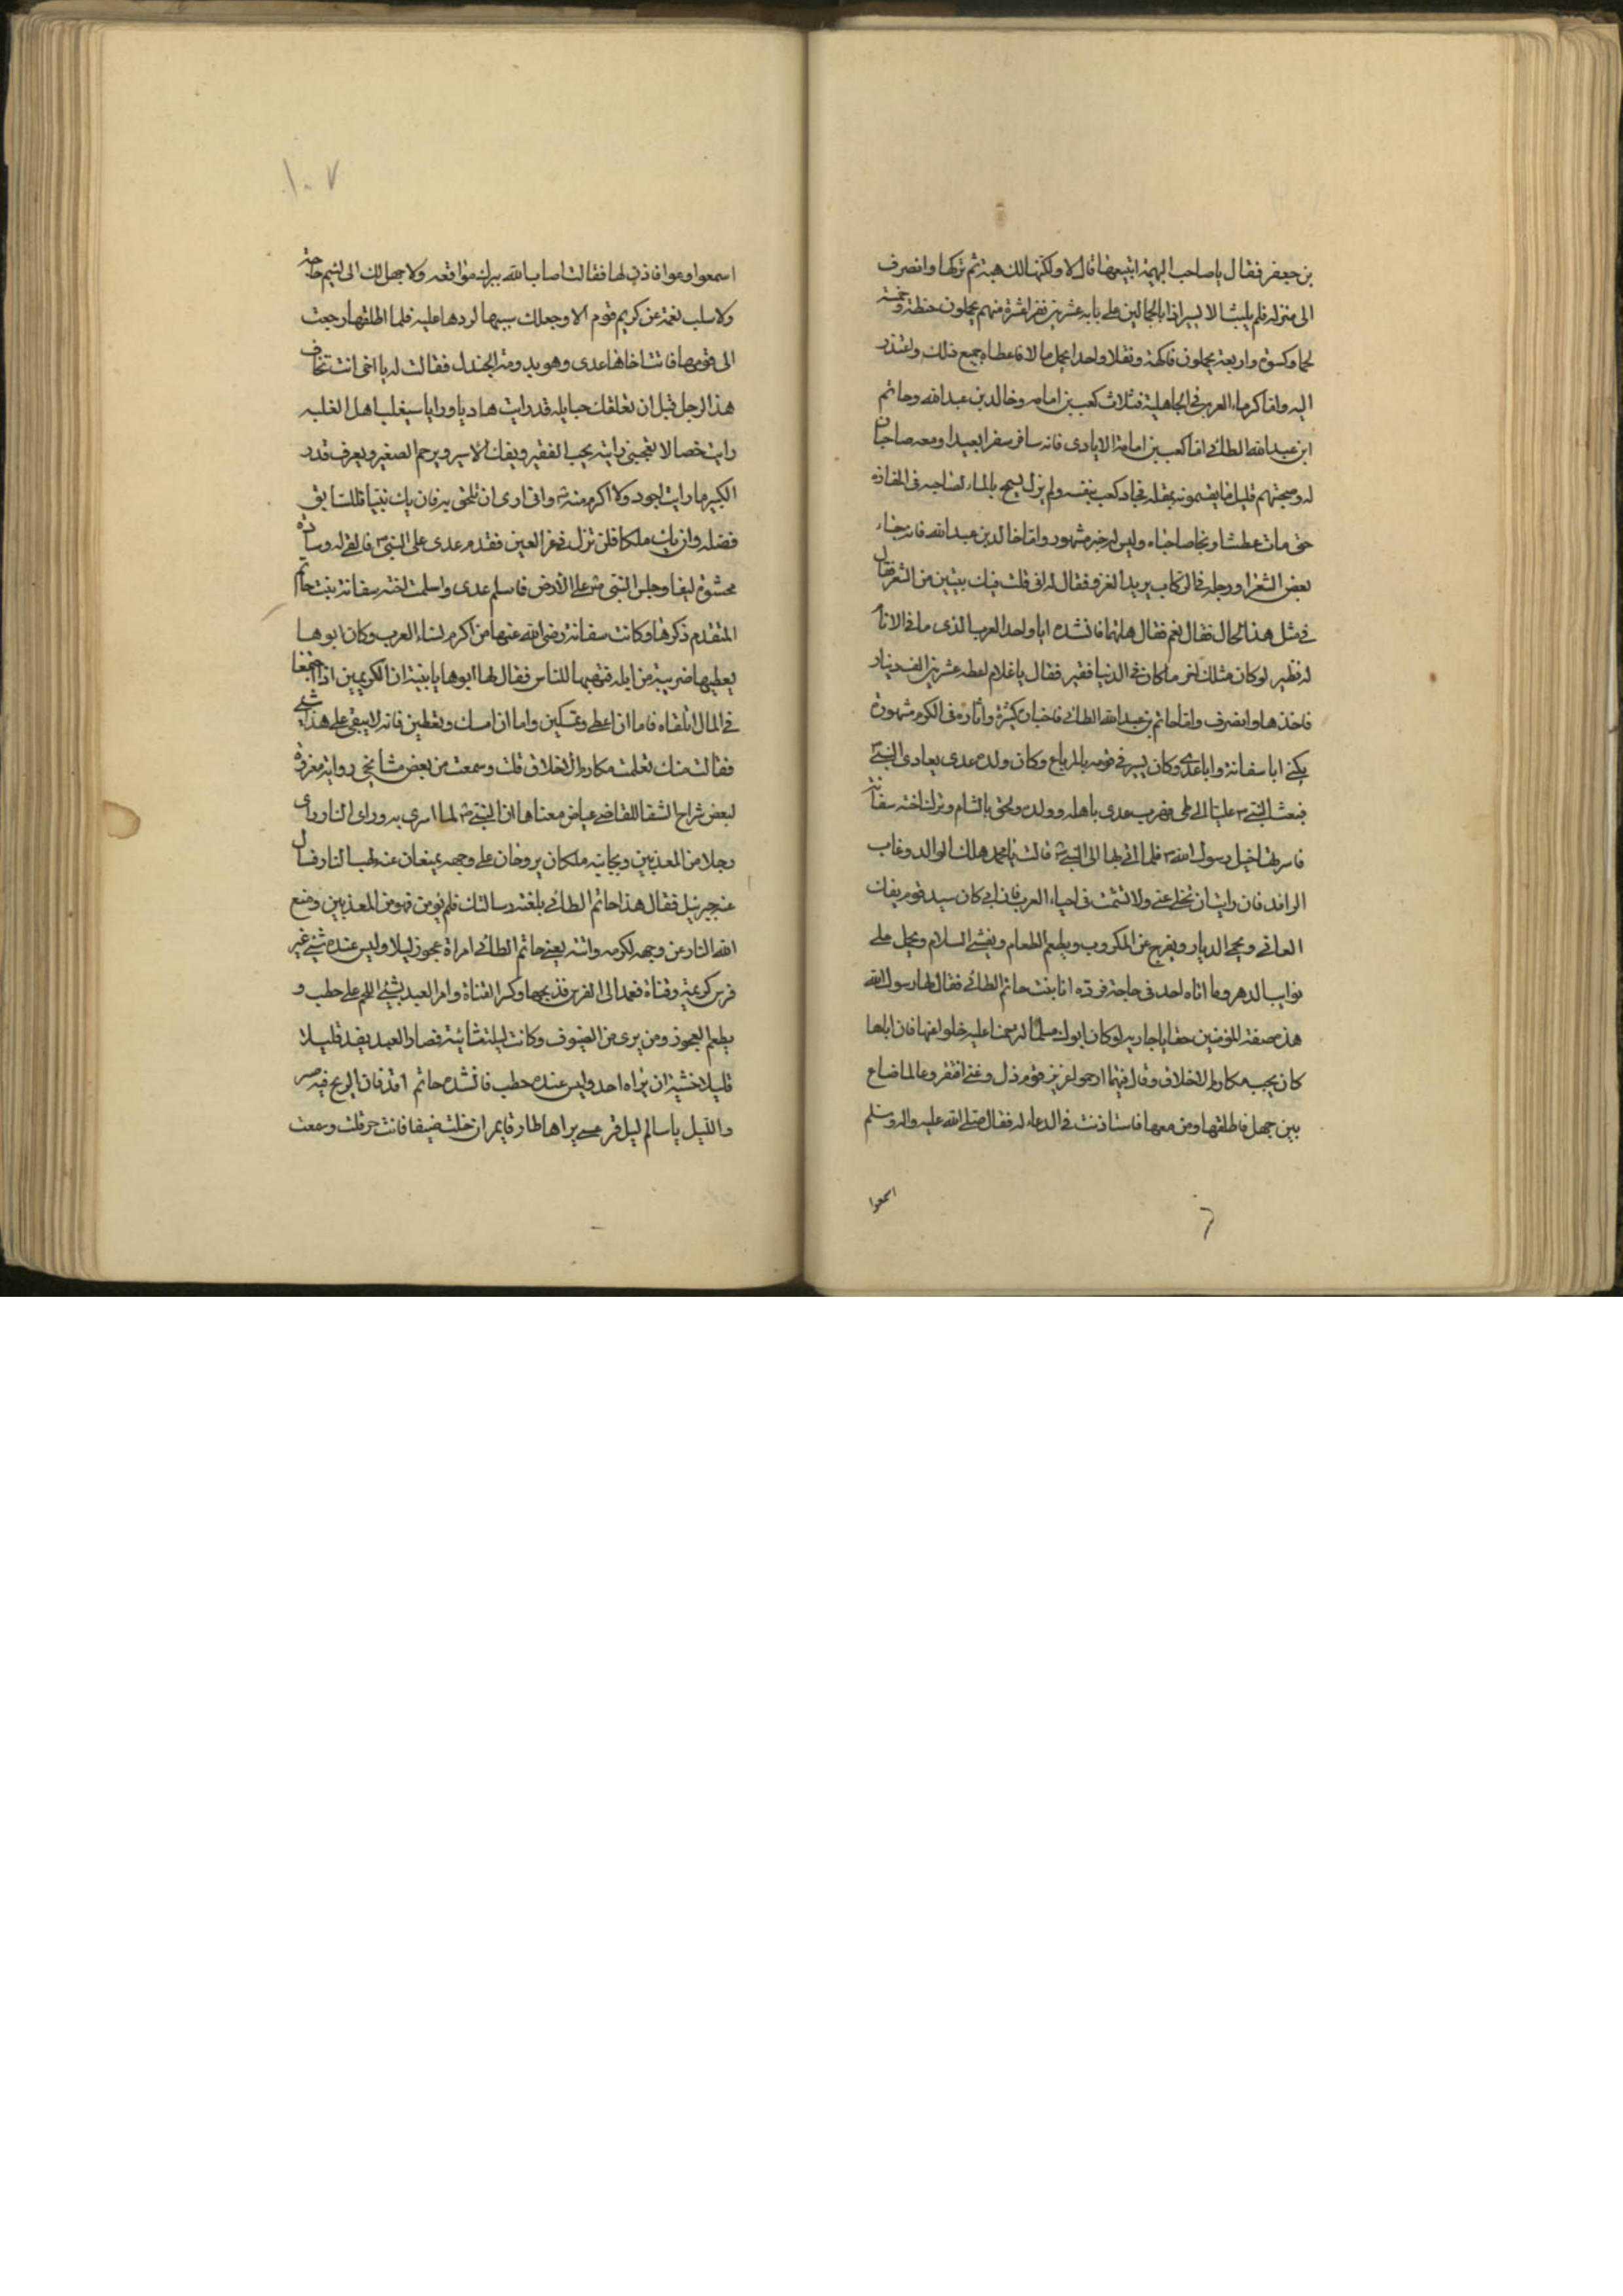 بن جعفر فقال يا صاحب البهيمة اتبيعها قال لا ولكنها لك هبة ثم تركها وانصرف
الى منزله فلم يلبث الا يسيرا فاذا بالحمالين على بابه عشرين نفرا عشرة منهم يحملون حنطة وخمسة
لحما وكسوة واربعة يحملون فاكهة ونقلا وواحدا يحمل مالا فاعطاه جميع ذلك واعتذر
اليه واما كرماء العرب في الجاهلية فثلاث كعب بن امامه وخالد بن عبد الله وحاتم
ابن عبد الله الطائى اما كعب بن امامة الايادى فانه سافر سفرا بعيدا ومعه صاحبان
له وصحبتهم قليل ما يقسمونه بمقله فجاد كعب بنفسه ولم يزل يسمح بالماء لصاحبه فى المفازه
حتى مات عطشا ونجا صاحباه وليس له خبر مشهور واما خالد بن عبد الله فانه جناء
بعض الشعرا ورجله فى الركاب يريد الغزو فقال له انى قلت فيك بيتين من الشعر فقال
فى مثل هذا الحال فقال نعم فقال هاتهما فانشده اياواحد العرب الذى ما فى الانام
له نظير لو كان مثلك اخر ما كان فى الدنيا فقير فقال يا غلام اعطه عشرين الف دينار
فاخذها وانصرف واما حاتم بن عبد الله الطائى فاخباره كثيرة واثاره فى الكرم مشهورة
يكنى ابا سفانة وابا عدى وكان يسير فى قومه بالمرباع وكان ولده عدى يعادى النبى
فبعث النبى عليا الى طى فهرب عدى باهله وولده ولحق بالشام وترك اخته سفانة
فاسرتها خيل رسول الله فلما اتى بها الى النبى قالت يا محمد هلك الوالد وغاب
الوافد فان رايت ان تخلى عنى ولا تشمت فى احياء العرب فان ابى كان سيد قومه يفك
العانى ويحمى الديار ويفرج عن المكروب ويطعم الطعام ويفشى السلام ويحمل على
نوايب الدهر وما اتاه احد فى حاجة فرده انا بنت حاتم الطائى فقال لها رسول الله
هذه صفة المؤمنين حقا يا جاريه لو كان ابوك مسلما لترحمنا عليه خلوا عنها فان اباها
كان يحب مكارم الاخلاق وقال فيها ارحموا عزيز قوم ذل وغنى افتقر وعالما ضاع
بين جهل فاطلقها ومن معها فاستاذنت فى الدعاء له فقال صلى الله عليه واله وسلم
اسمعوا
١٠٧
اسمعوا وعوا فاذن لها فقالت اصاب الله ببرك مواقعه ولا جعل لك الى لئيم حاجة
ولا سلب نعمة عن كريم قوم الا وجعلك سببها لردها عليه فلما اطلقها رجعت
الى قومها فاتت اخاها عدى وهو بدومة الجندل فقالت له يا اخى انت تخاف
هذا الرجل قبل ان تعلقك حبايله قد رايت هاديا ورايا سيغلب اهل الغلبه
رايت خصالا تعجبنى رايته يحب الفقير ويفك الاسير ويرحم الصغير ويعرف قدر
الكبير ما رايت اجود ولا اكرم منه وانى ارى ان تلحق به فان يك نبيا فللسابق
فضله وان يك ملكا فلن تزل فى عز العين فقدم عدى على النبى فالقى له وسادة
محشوة ليفا وجلس النبى على الارض فاسلم عدى واسلمت اخته سفانة بنت حاتم
المتقدم ذكرها وكانت سفانة رضى الله عنها من اكرم نساء العرب وكان ابوها
يعطيها ضريبة من ابله فتهبها للناس فقال لها ابوها يا بنية ان الكريمين اذا اجتمعا
فى المال اتلفاه فاما ان اعطى وتمسكين واما ان امسك وتعطين فانه لا يبقى على هذا شى
فقالت منك تعلمت مكارم الاخلاق قلت وسمعت من بعض مشائخى رواية معزوة
لبعض شراح الشفا للقاضى عياض معناها ان النبى لما اسرى به وراى النار راى
رجلا من المعذبين وبجانبه ملكان يروحان على وجهه يمنعان عنه لهب النار فسال
عنه جبرئيل فقال هذا حاتم الطائى بلغته رسالتك فلم يؤمن فهو من المعذبين ومنع
الله النار عن وجهه لكرمه واتته يعنى حاتم الطائى امراة عجوز ليلا وليس عنده شئ غير
فرس كريمة وقناة فعمد الى الفرس فذبحها وكسر القناة وامر العبد بشئ اللحم على حطب و
يطعم العجوز ومن يرى من الضيوف وكانت ليلة شائية فصار العبد يقد قليلا
قليلا خشية ان يراه احد وليس عنده حطب فانشده حاتم اوقد فان الريح فيه صر
والليل يا سالم ليل قر عسى يراها طارق يمر ان جلبت ضيفا فانت حر قلت وسمعت